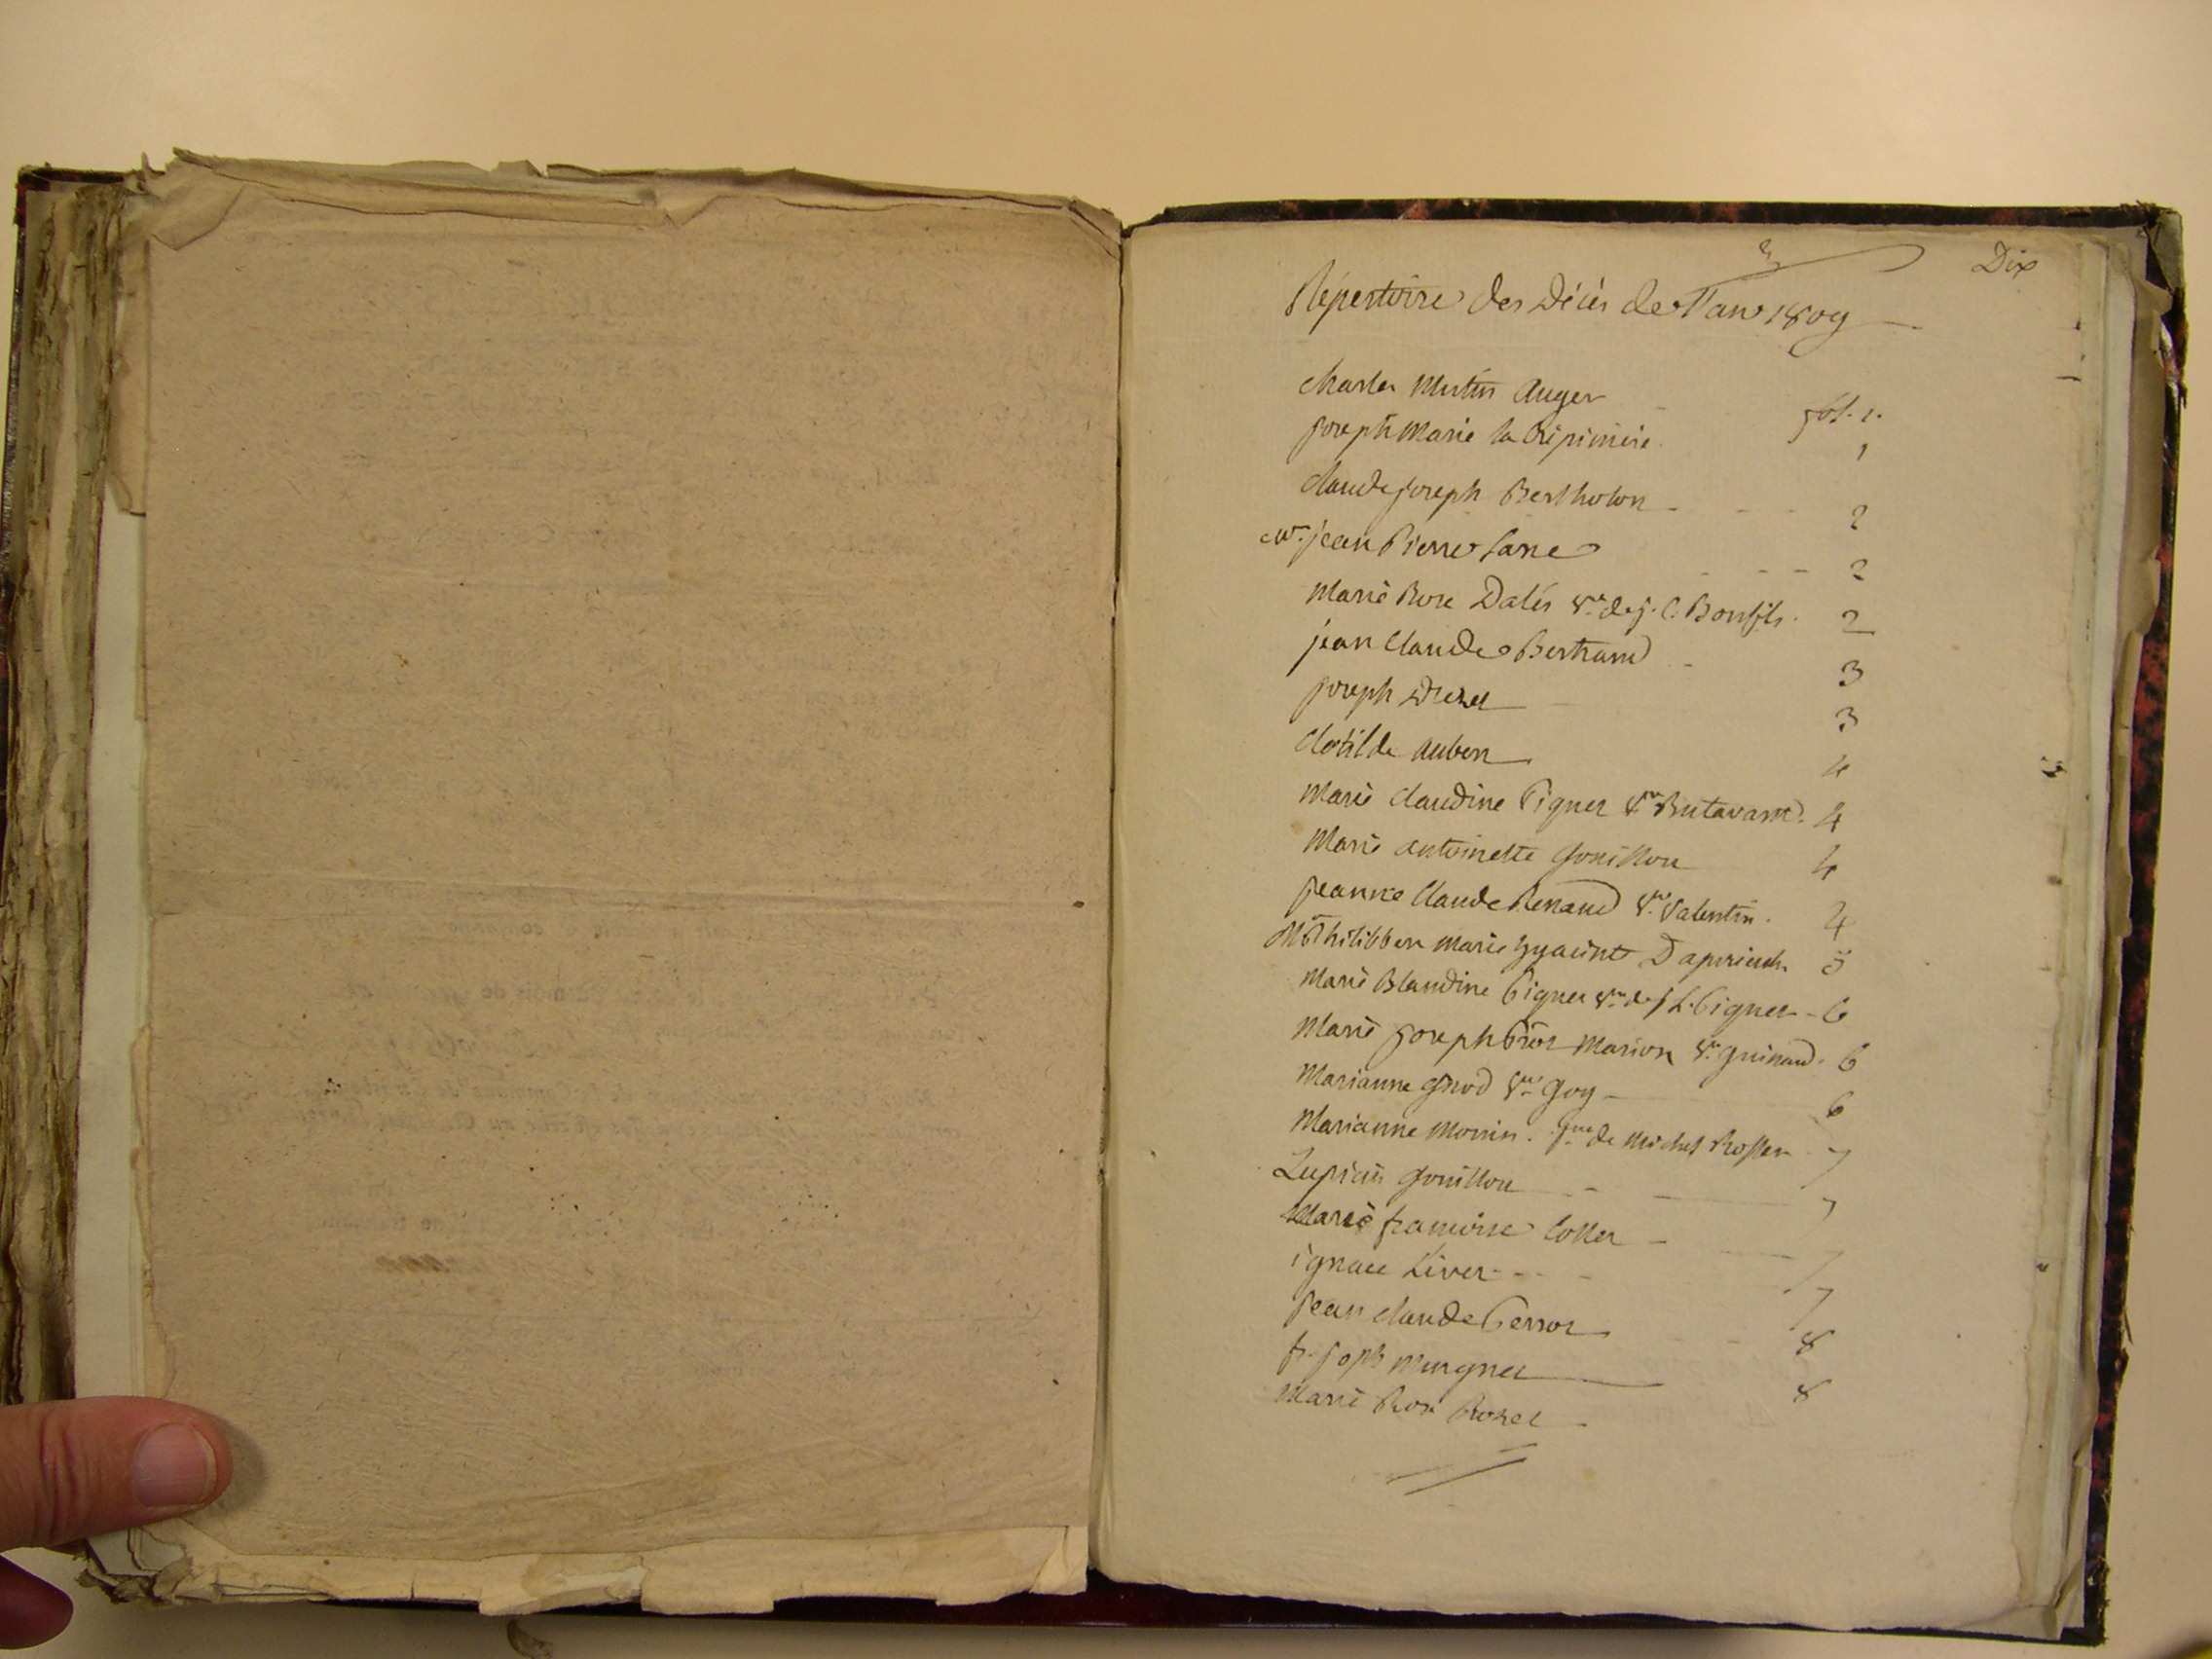 Dix
Répertoire des Décès de l'an 1809
Charles Auger fol. 1.
joseph Marie la 1
Claude joseph Bertholon 2
jean Pierre 2
Marie Rose Dalés Ve de j. C. Bonfils. 2
jean Claude Bertrand 3
joseph 3
Clotilde 4
Marie Claudine Piguet Ve Butavant. 4
Marie antoinette Gouillon 4
jeanne Claude Renaud Ve Valentin. 4
Marie hyacinte 5
Marie Blandine Piguet Ve de Piguet 6
Marie joseph Marion Ve guinaud. 6
Marianne grod Ve Goy 6
Marianne Monin. fme de Michel Rosset 7
Lupicin Gouillon 7
Marie francoise Collet 7
ignace 7
jean Claude Perrot 8
fr. joph 8
Marie Rose Rozet